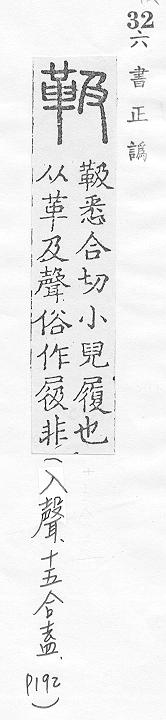 32
六書正譌
靸
靸悉合切小兒履也
从革及聲俗作㞕非
(入聲、十五合盍、
P192)